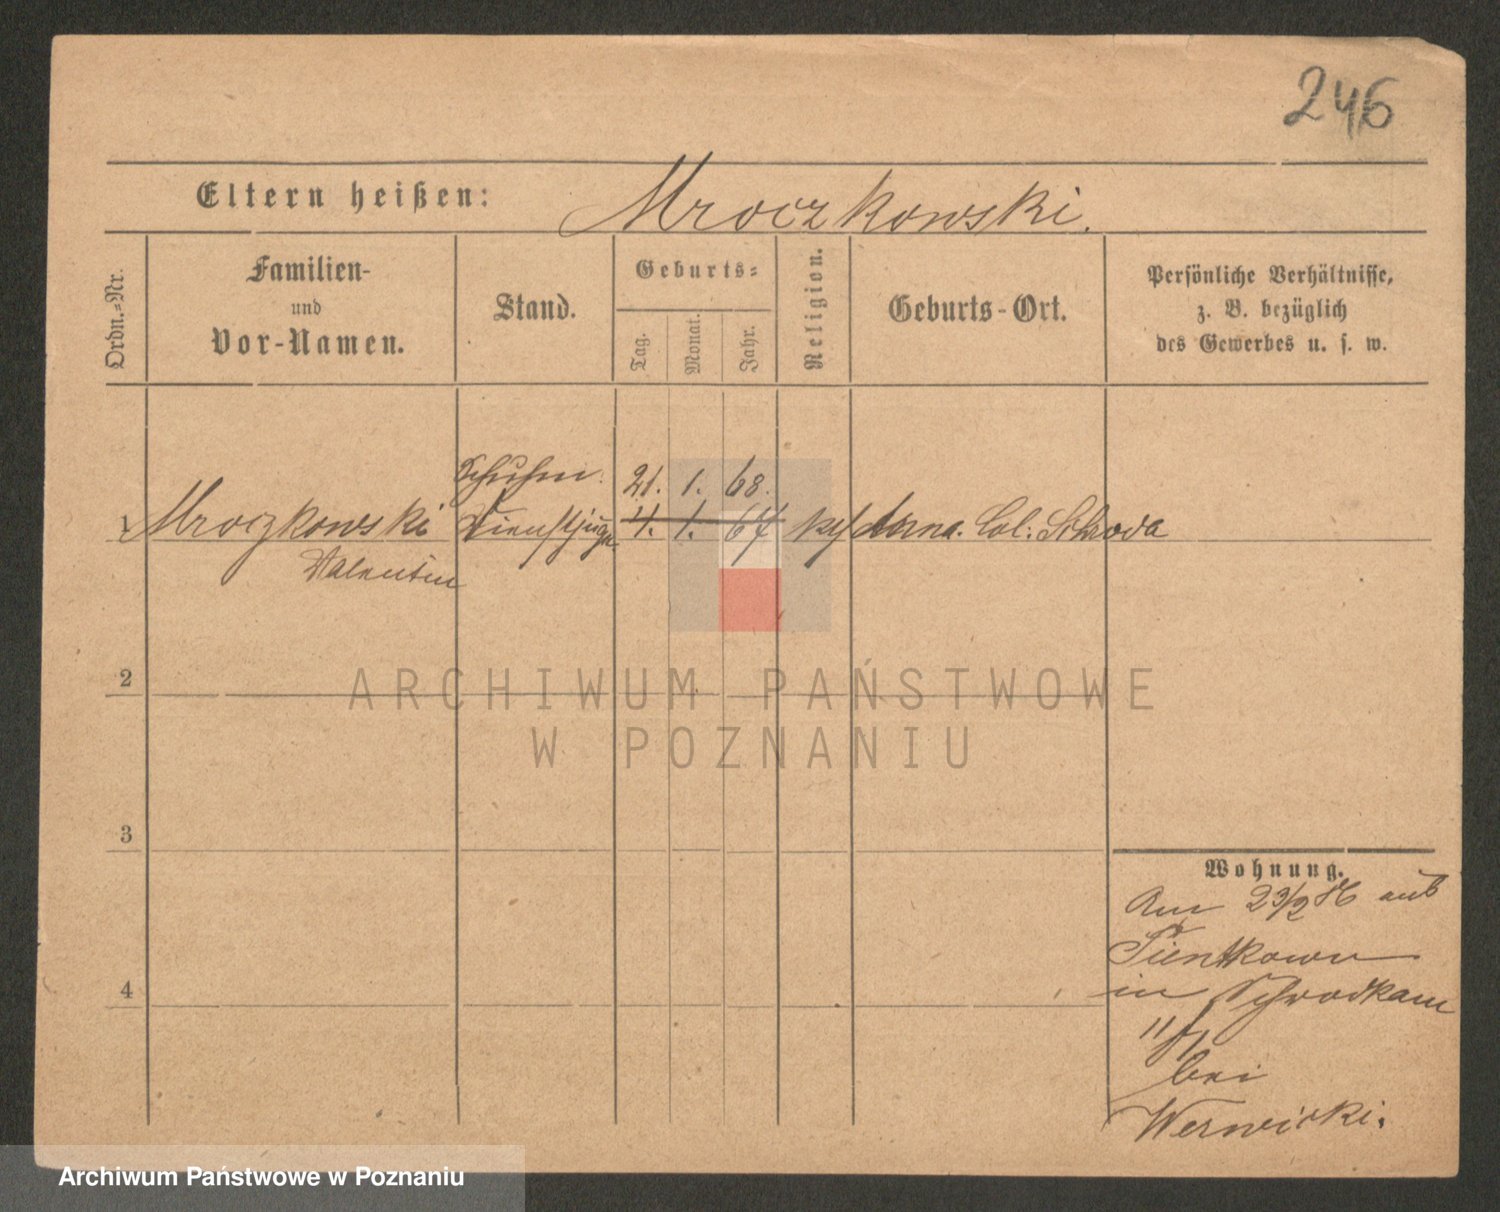 246
Eltern heißen: Mroczkowski.
Ordn.-Nr.
Familien-
und
Vor-Namen.
Stand.
Geburts-
Tag.
Monat.
Jahr.
Religion.
Geburts-Ort.
Persönliche Verhältnisse,
z. B. bezüglich
des Gewerbes u. s. w.
Schuhm. 21. 1. 68.
1 Mroczkowski 4. 1. 67 Col: Schroda
Valentin
2
3
4
Wohnung.
Am 23/2 86 aus
Pientkowo
in
11/
bei
Werwicki.
ARCHIWUM PAŃSTWOWE
W POZNANIU
Archiwum Państwowe w Poznaniu